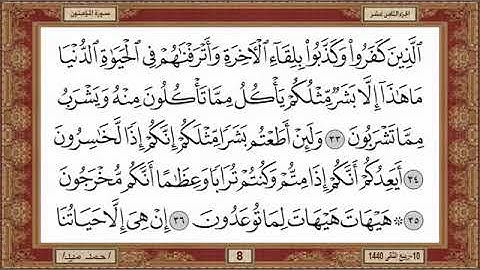 الجزء الثامن عشر
سورة المؤمنون
الَّذِينَ كَفَرُوا۟ وَكَذَّبُوا۟ بِلِقَآءِ ٱلْءَاخِرَةِ وَأَتْرَفْنَٰهُمْ فِى ٱلْحَيَوٰةِ ٱلدُّنْيَا
مَا هَٰذَآ إِلَّا بَشَرٌ مِّثْلُكُمْ يَأْكُلُ مِمَّا تَأْكُلُونَ مِنْهُ وَيَشْرَبُ
مِمَّا تَشْرَبُونَ ٣٣ وَلَئِنْ أَطَعْتُم بَشَرًا مِّثْلَكُمْ إِنَّكُمْ إِذًا لَّخَٰسِرُونَ
٣٤ أَيَعِدُكُمْ أَنَّكُمْ إِذَا مِتُّمْ وَكُنتُمْ تُرَابًا وَعِظَٰمًا أَنَّكُم مُّخْرَجُونَ
٣٥ ۞ هَيْهَاتَ هَيْهَاتَ لِمَا تُوعَدُونَ ٣٦ إِنْ هِىَ إِلَّا حَيَاتُنَا
10-ربيع الثاني 1440
8